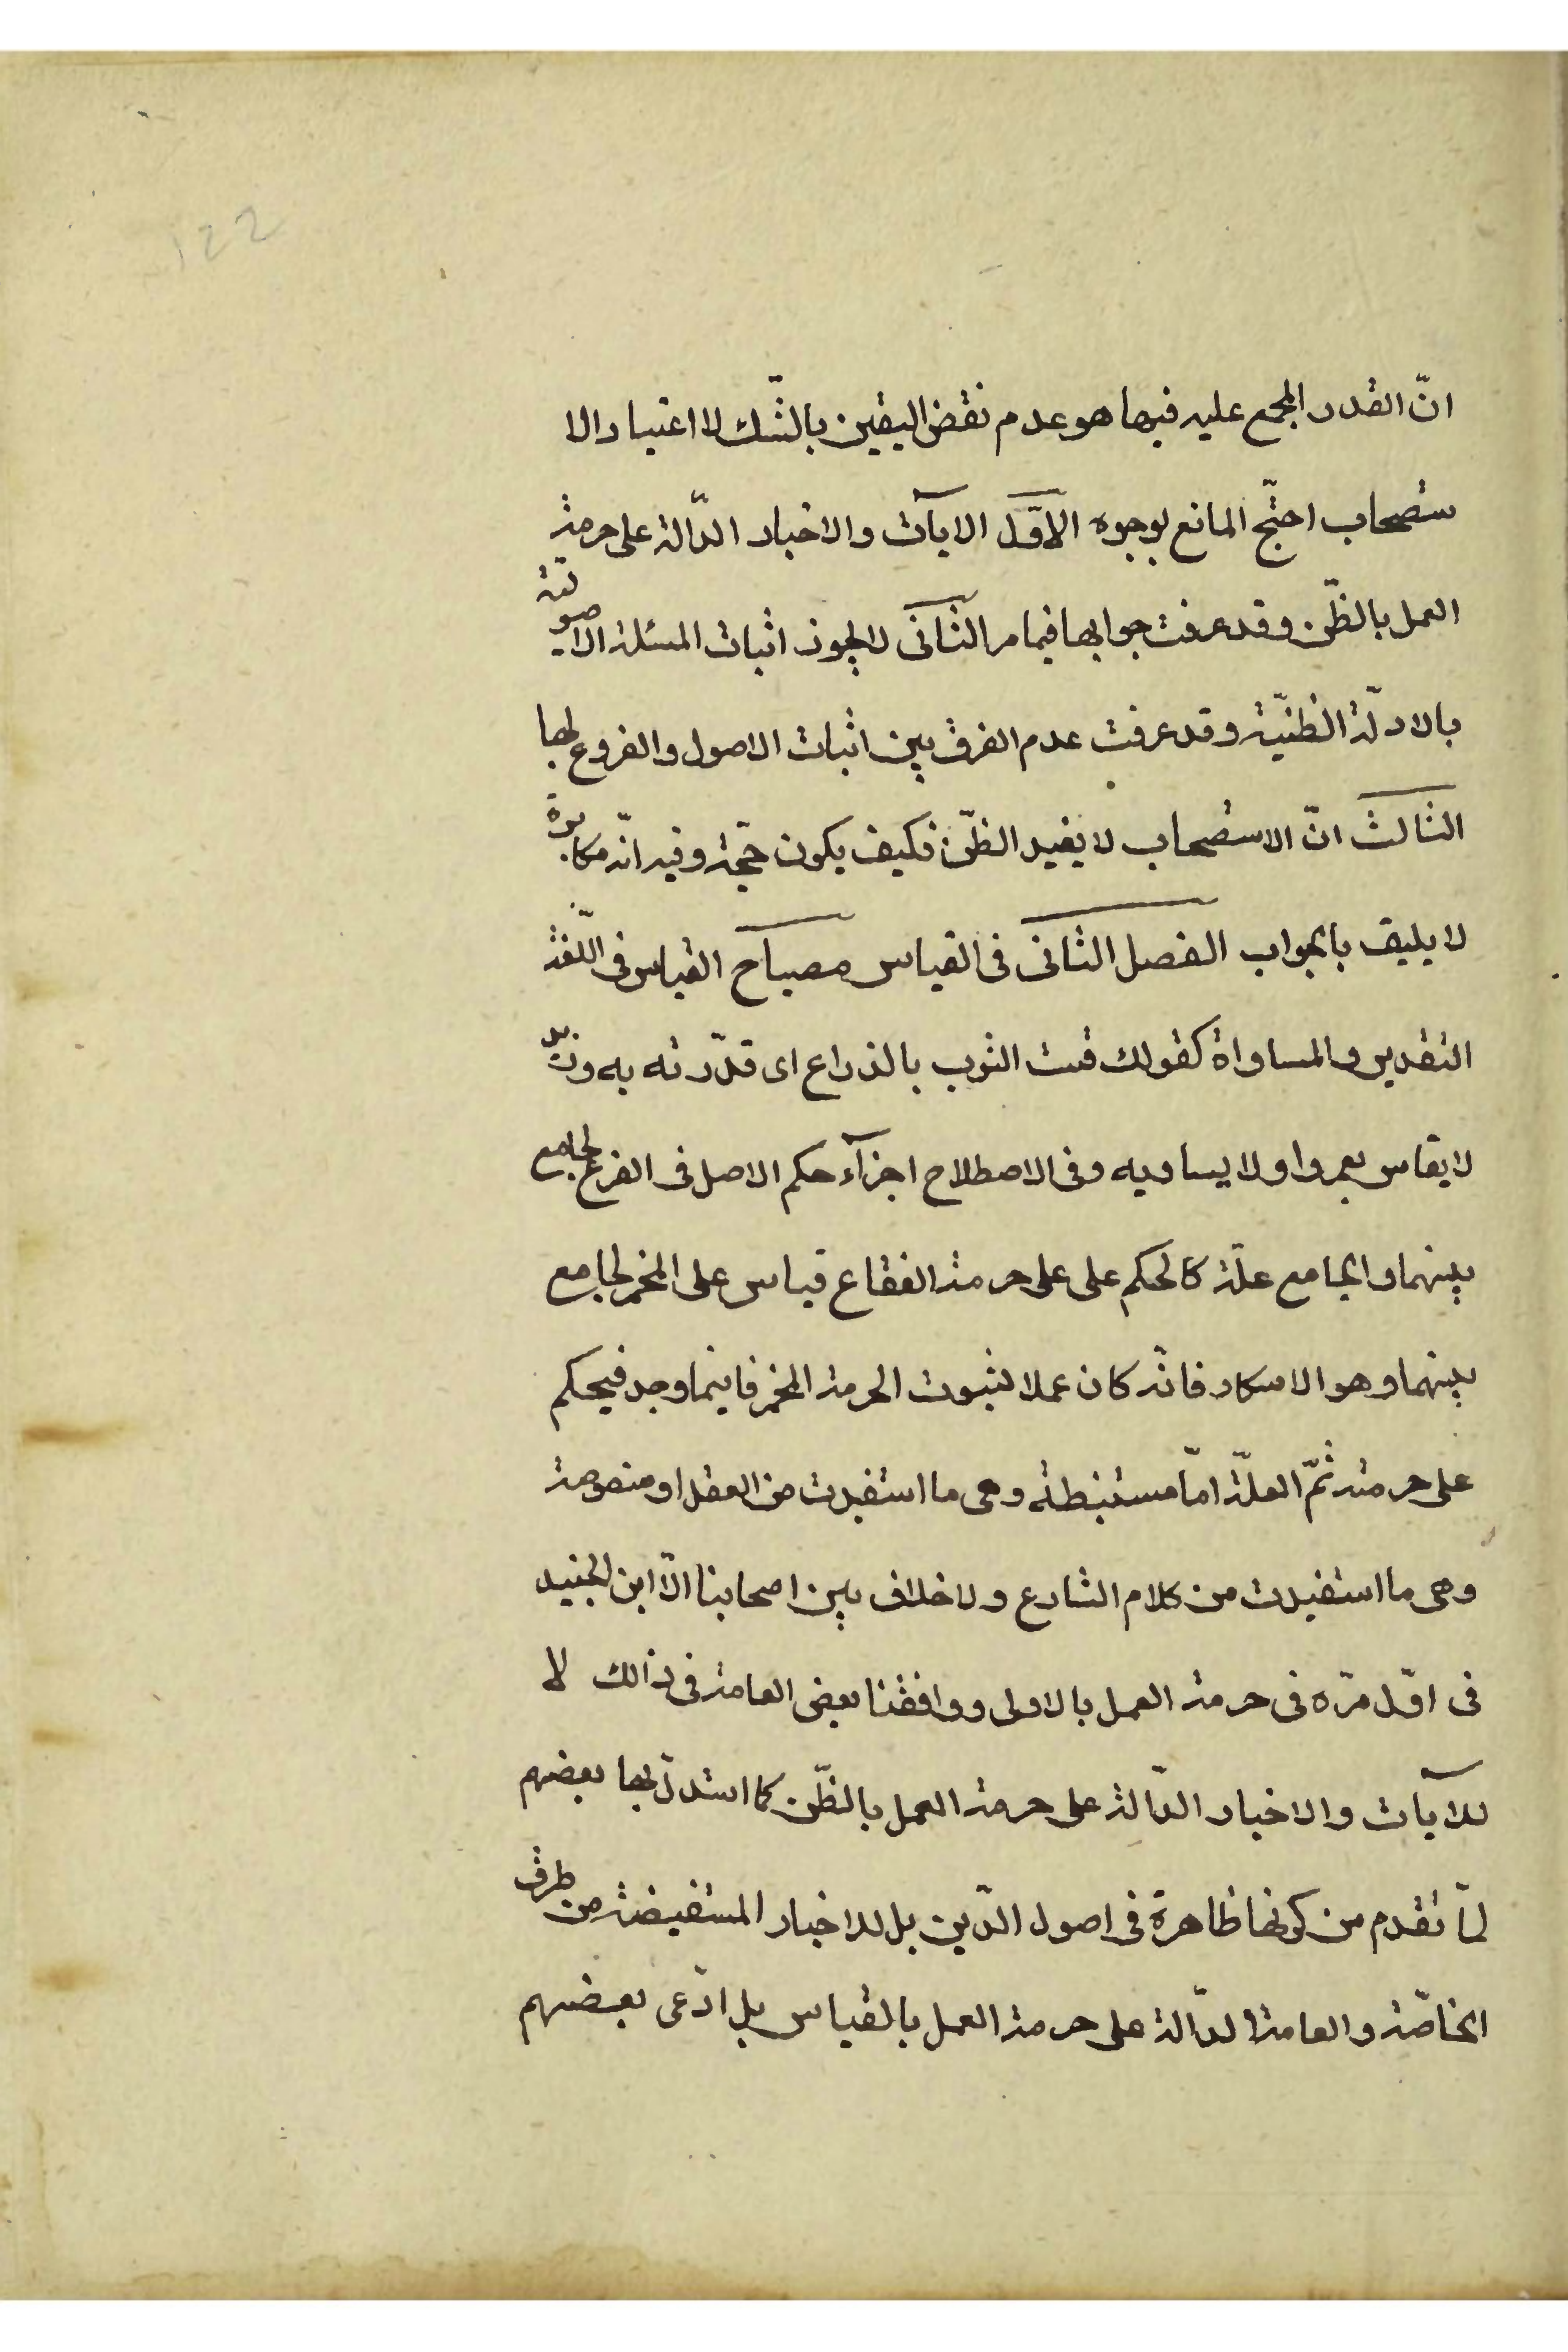 122
انّ القدر المجمع عليه فيها هو عدم نقض اليقين بالشّك لا اعتبار الا
ستصحاب احتجّ المانع بوجوه الاوّل الايآت والاخبار الدّالة على حرمة
العمل بالظّن وقد عرفت جوابها فيما مر الثانى لا يجوز اثبات المسئلة الاصولية
بالادلّة الظنيّة وقد عرفت عدم الفرق بين اثبات الاصول والفروع لها
الثالث انّ الاستصحاب لا يفيد الظّن فكيف يكون حجّة وفيه انّه مكابرة
لا يليق بالجواب الفصل الثانى فى القياس مصباح القياس فى اللّغة
التقدير والمساواة كقولك قست الثوب بالذراع اى قدّرته به وزيد
لا يقاس بعمرو او لا يساويه وفى الاصطلاح اجزآء حكم الاصل فى الفرع لجامع
بينهما والجامع علّة كالحكم على على حرمة الفقاع قياس على الخمر لجامع
بينهما وهو الاسكار فانّه كان عملا لثبوت الحرمة الخمر فاينما وجد فيحكم
على حرمته ثمّ العلّة امّا مستنبطة وهى ما استفيدت من العقل او منصوصة
وهى ما استفيدت من كلام الشارع ولا خلاف بين اصحابنا الّا ابن الجنيد
فى اوّل مرّه فى حرمة العمل بالاولى ووافقنا بعض العامة فى ذالك لا
للآيات والاخبار الدّالة على حرمة العمل بالظّن كما استدلّ بها بعضهم
لمّا تقدم من كونها ظاهرة فى اصول الدّين بل للاخبار المستفيضة من طرق
الخاصّة والعامة الدّالة على حرمة العمل بالقياس بل ادّعى بعضهم